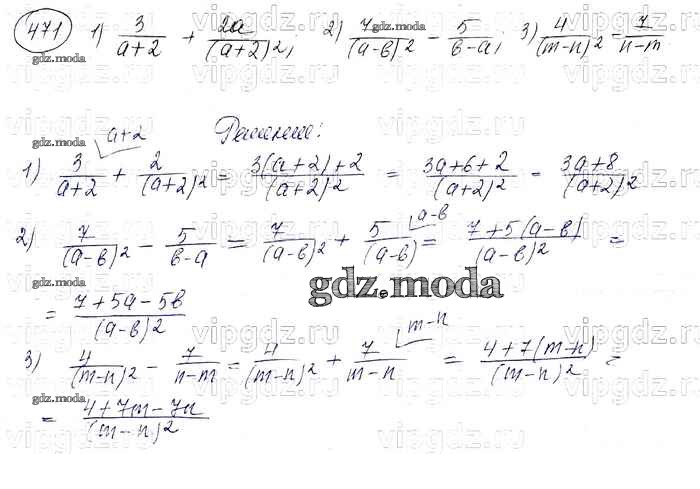 471 1) 3/(a+2) + 2a/(a+2)², 2) 7/(a-b)² - 5/(b-a); 3) 4/(m-n)² - 7/(n-m)
gdz.moda
Решение:
1) 3/(a+2) (a+2 + 2/(a+2)² = (3(a+2)+2)/(a+2)² = (3a+6+2)/(a+2)² = (3a+8)/(a+2)²
2) 7/(a-b)² - 5/(b-a) = 7/(a-b)² + 5/(a-b) (a-b = (7+5(a-b))/(a-b)² =
gdz.moda
= (7+5a-5b)/(a-b)²
3) 4/(m-n)² - 7/(n-m) = 4/(m-n)² + 7/(m-n) (m-n = (4+7(m-n))/(m-n)² =
= (4+7m-7n)/(m-n)²
vipgdz.ru